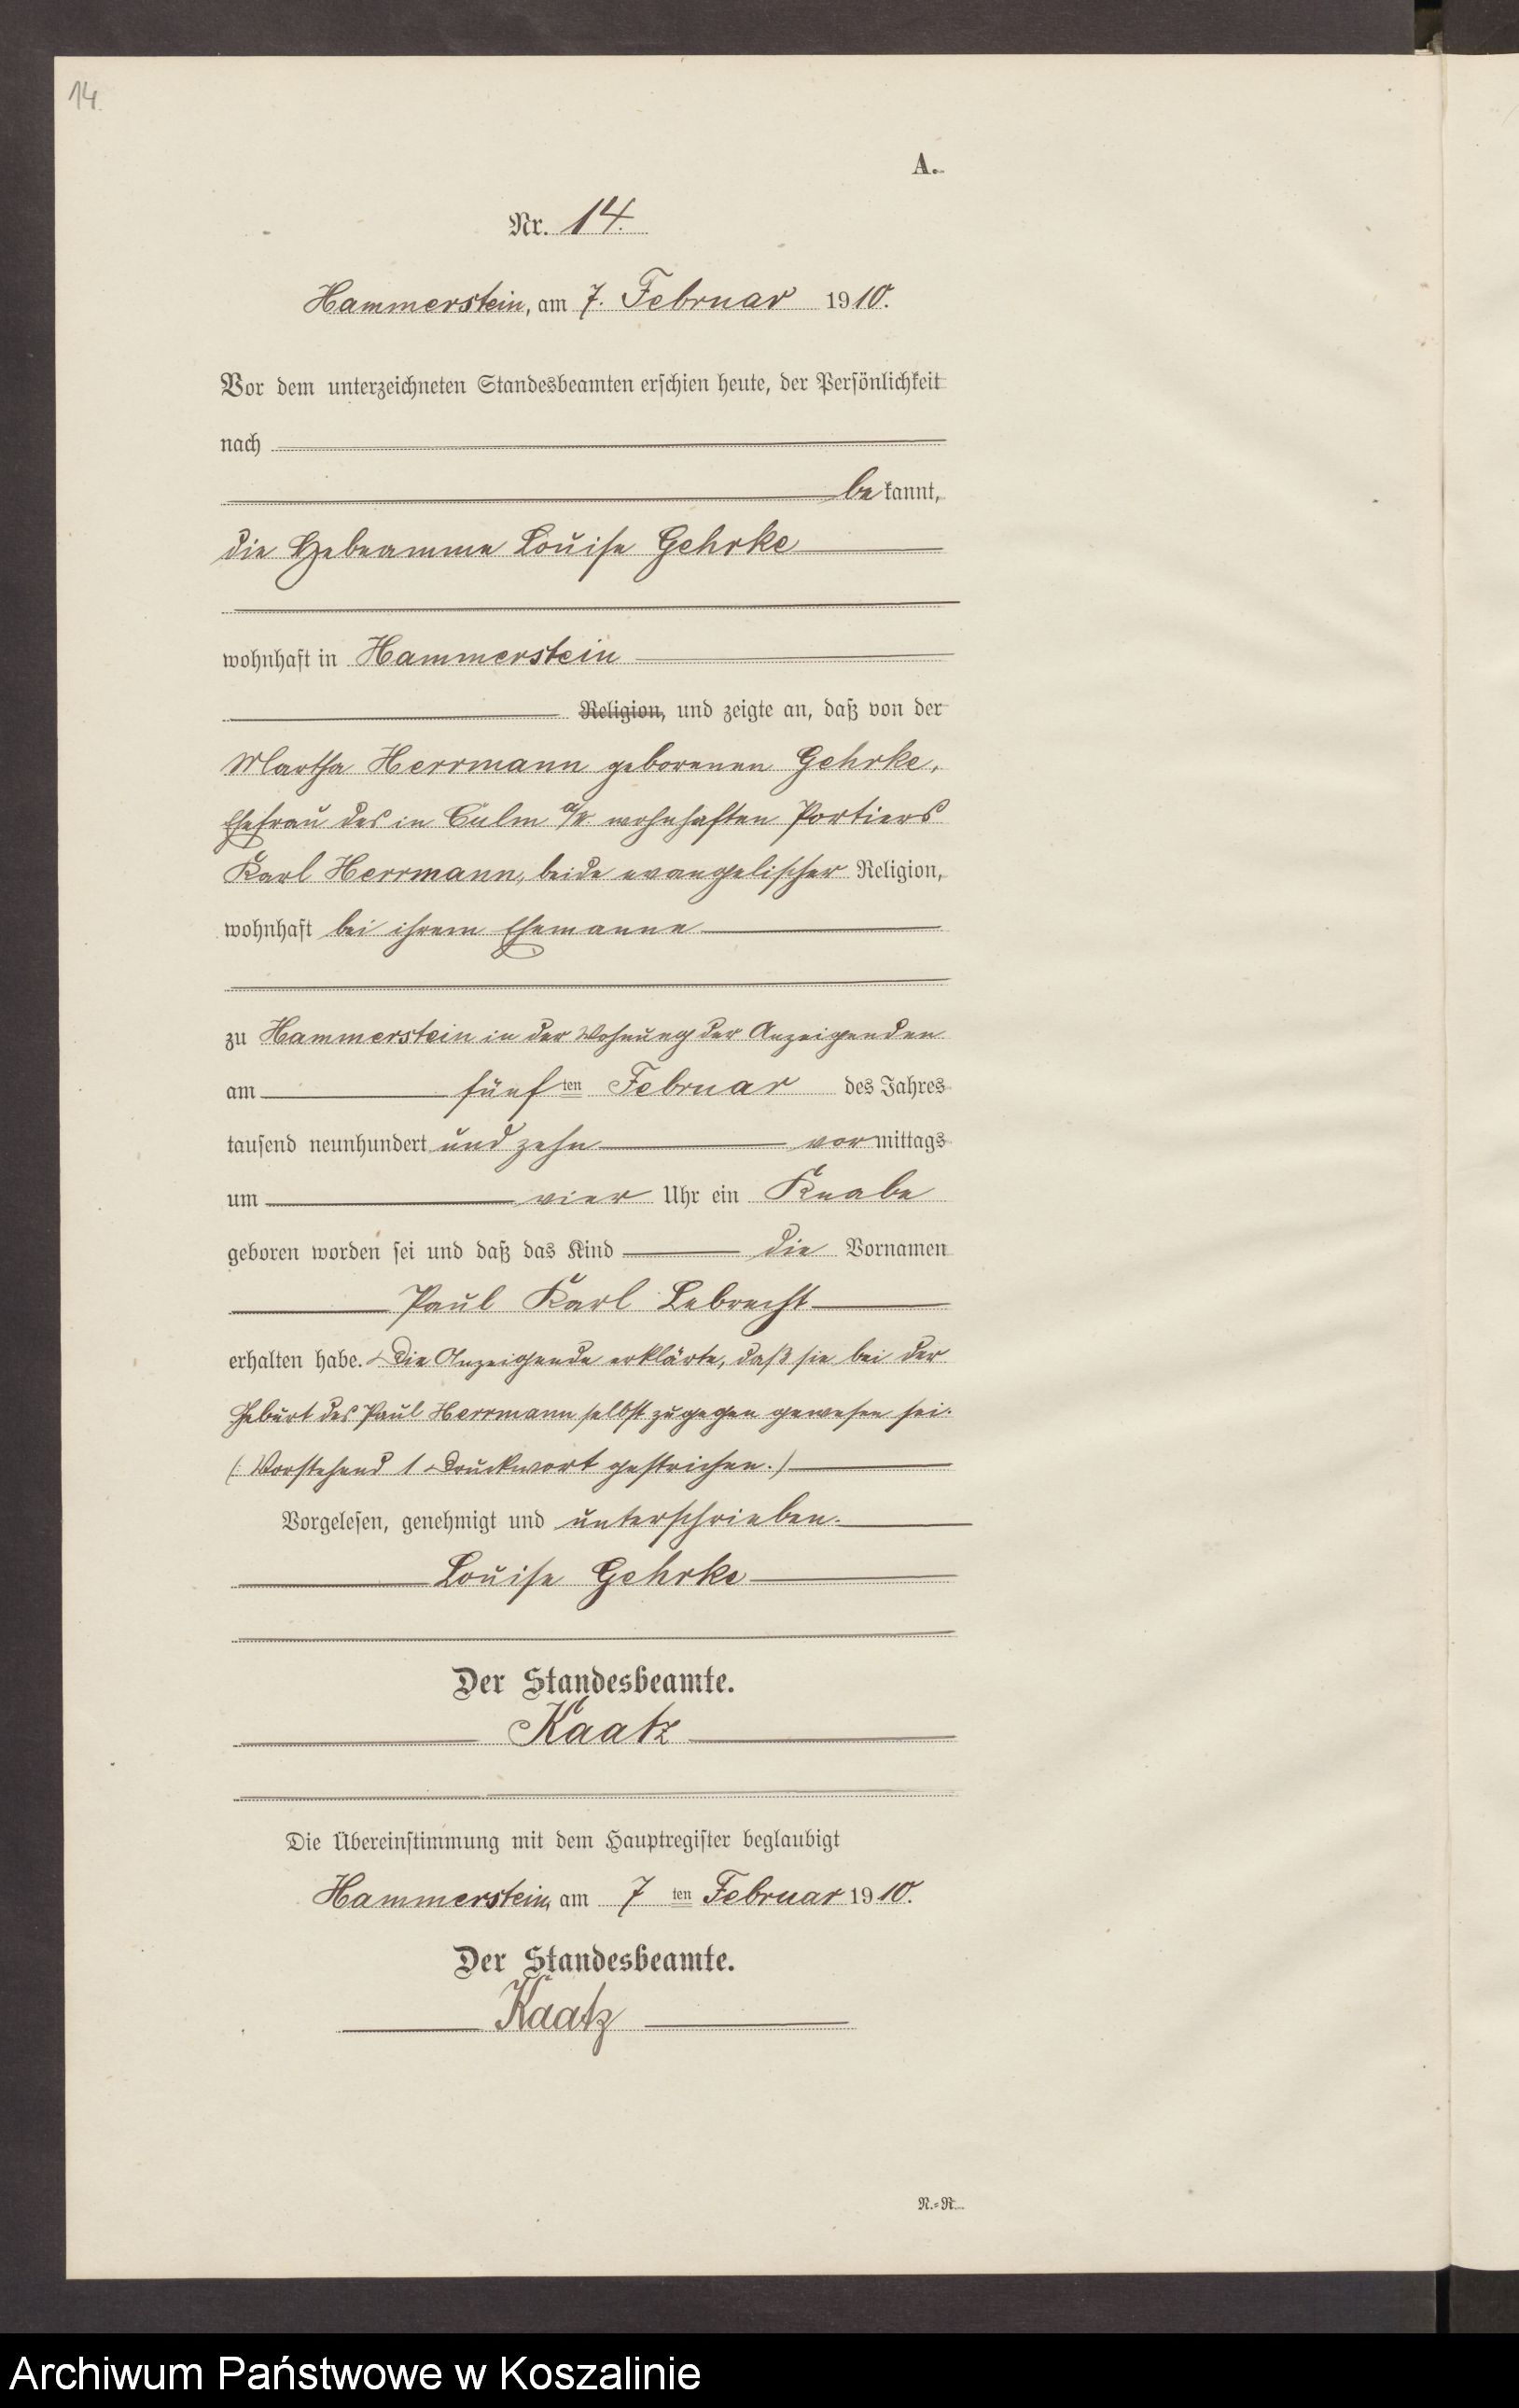 14.
A.
Nr. 14.
Hammerstein, am 7. Februar 1910.
Vor dem unterzeichneten Standesbeamten erschien heute, der Persönlichkeit
nach
bekannt,
die Hebeamme Louise Gehrke
wohnhaft in Hammerstein
Religion, und zeigte an, daß von der
Martha Herrmann geborenen Gehrke,
Ehefrau des in Culm a/W. wohnhaften Portiers
Karl Herrmann, beide evangelischer Religion,
wohnhaft bei ihrem Ehemanne
zu Hammerstein in der Wohnung der Anzeigenden
am fünften Februar des Jahres
tausend neunhundert und zehn vormittags
um vier Uhr ein Knabe
geboren worden sei und daß das Kind die Vornamen
Paul Karl Lebrecht
erhalten habe. Die Anzeigende erklärte, daß sie bei der
Geburt des Paul Herrmann selbst zugegen gewesen sei.
(: Vorstehend 1 Druckwort gestrichen.)
Vorgelesen, genehmigt und unterschrieben.
Louise Gehrke
Der Standesbeamte.
Kaatz
Die Übereinstimmung mit dem Hauptregister beglaubigt
Hammerstein, am 7ten Februar 1910.
Der Standesbeamte.
Kaatz
N.=R.
Archiwum Państwowe w Koszalinie